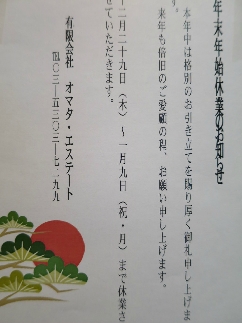 年末年始休業のお知らせ
本年中は格別のお引き立てを賜り厚く御礼申し上げま
す。
来年も倍旧のご愛顧の程、お願い申し上げます。
十二月二十九日(木)～一月九日(祝・月)まで休業さ
せていただきます。
有限会社 オマタ・エステート